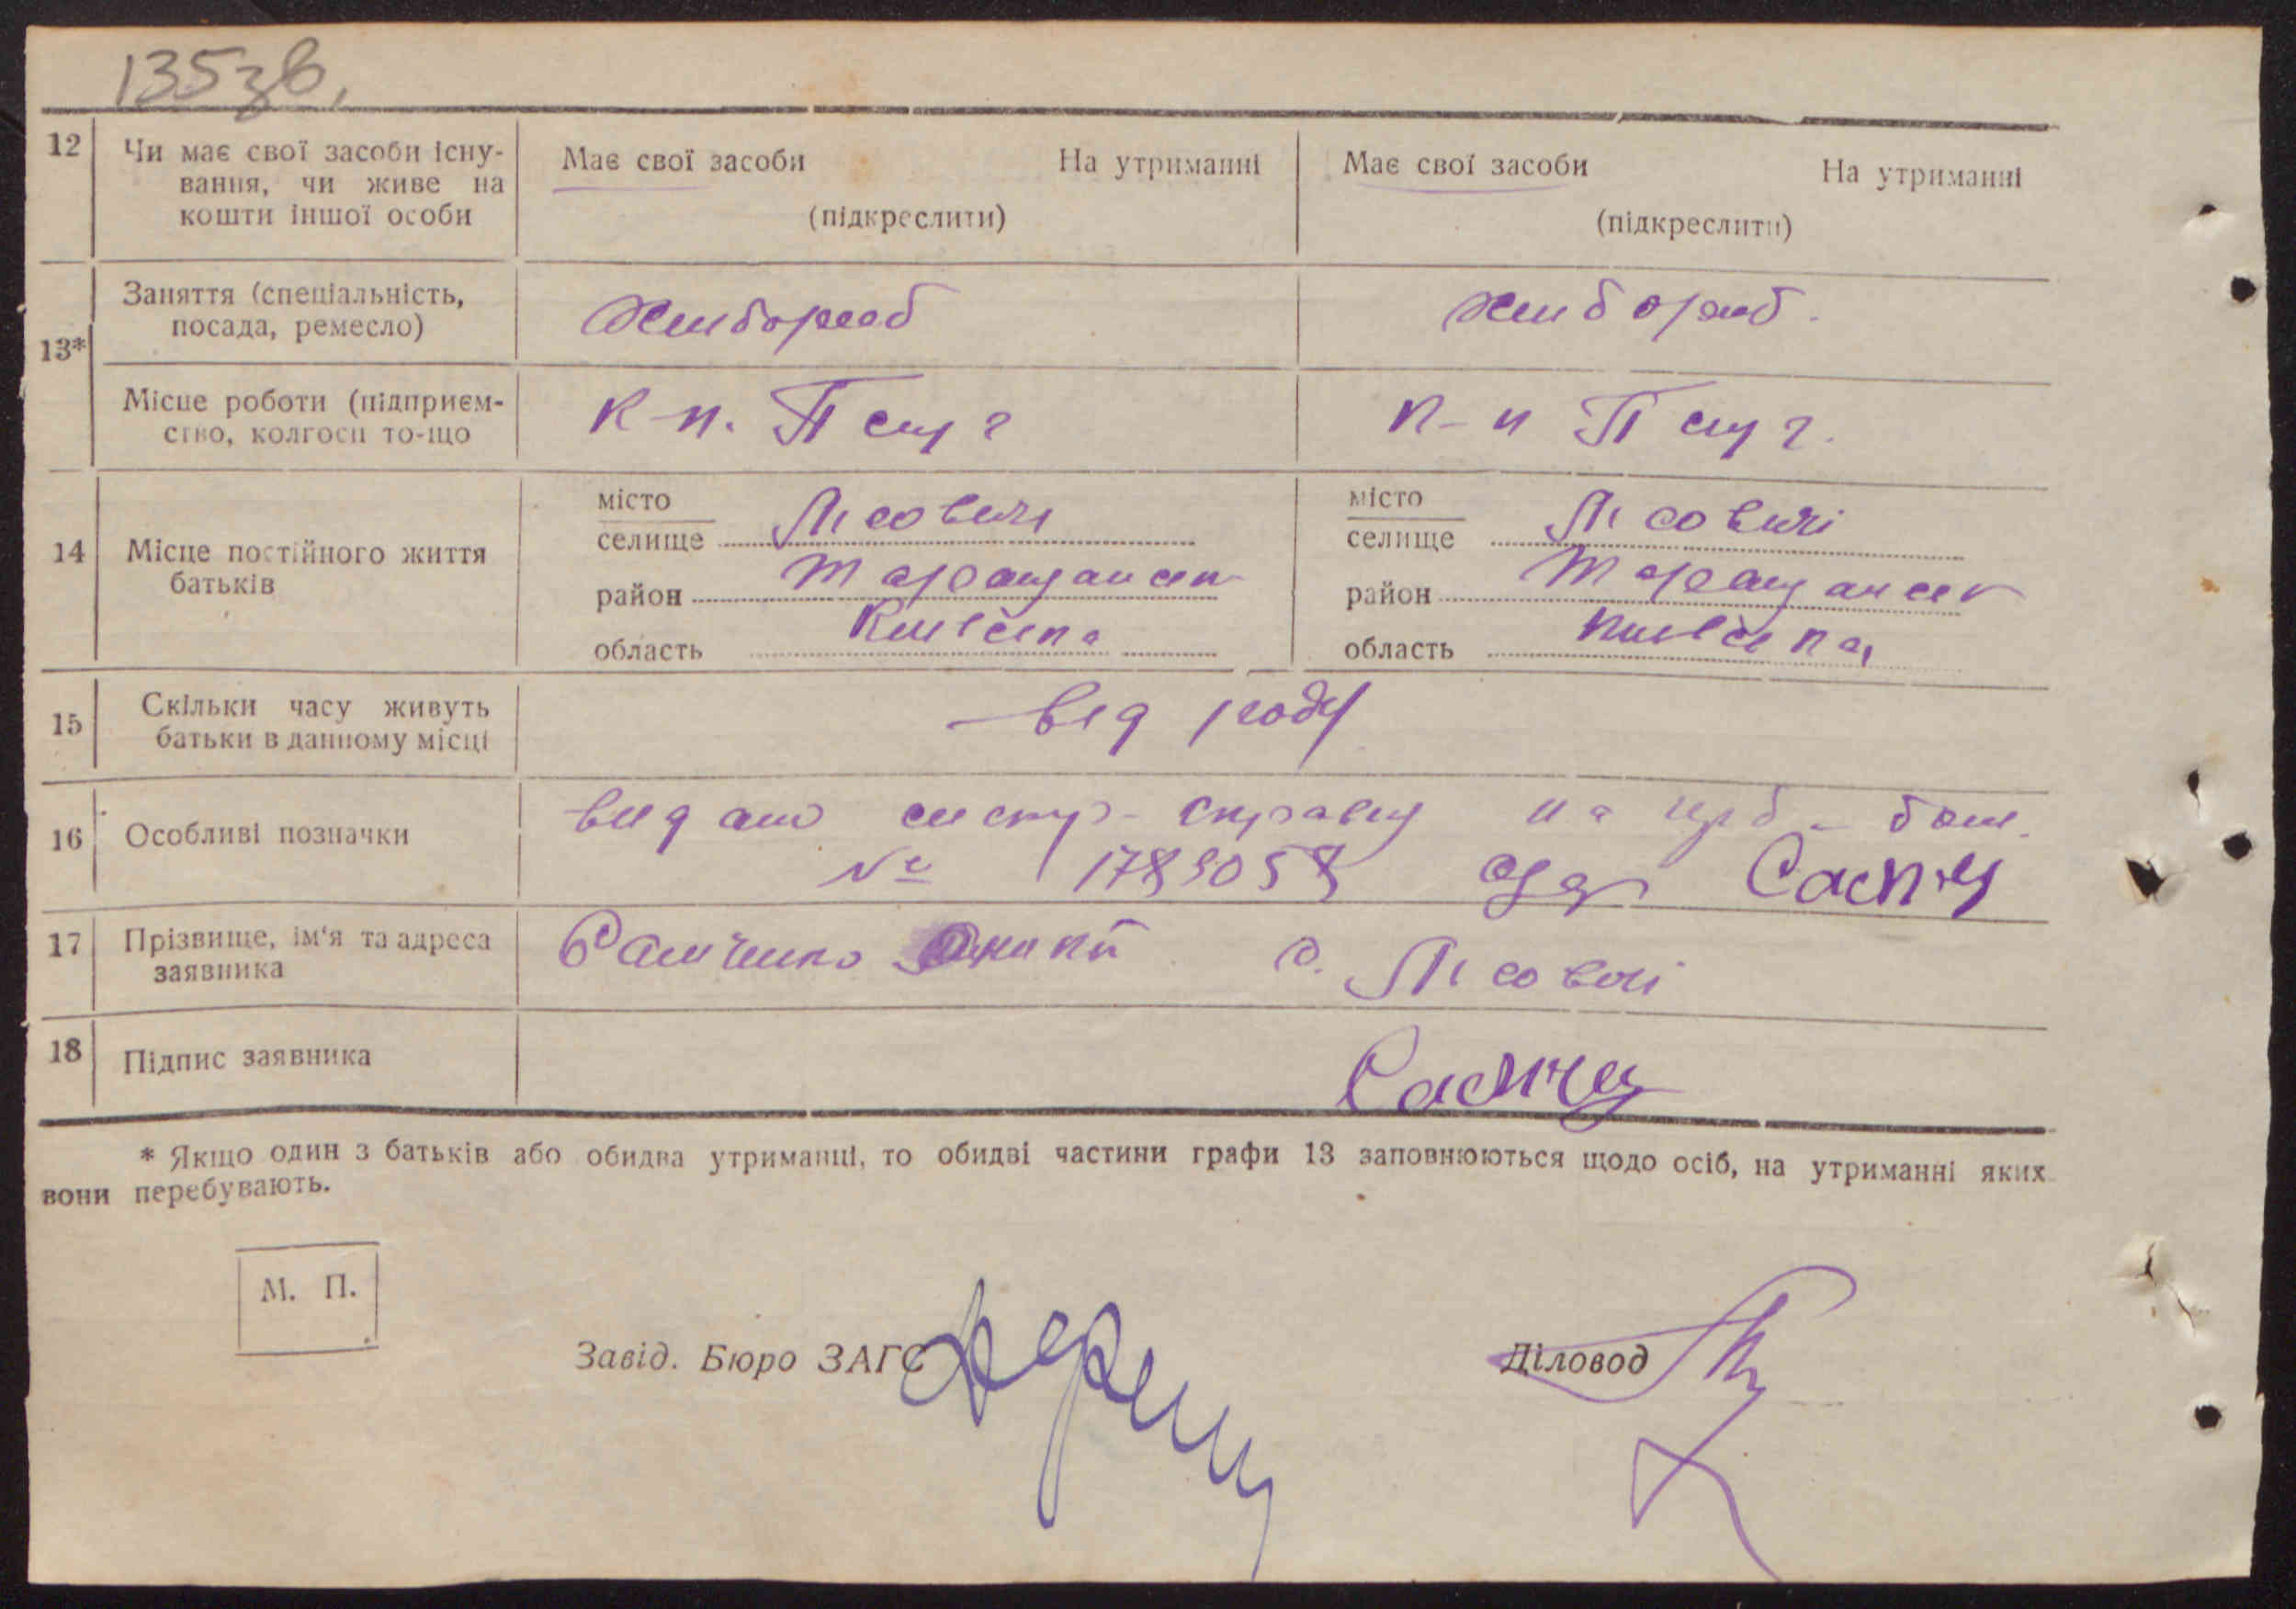 135зв,
12 Чи має свої засоби існу-
вання, чи живе на
кошти іншої особи
Має свої засоби На утриманні
(підкреслити)
Має свої засоби На утриманні
(підкреслити)
13*
Заняття (спеціальність,
посада, ремесло)
Хлибороб
Хлибороб.
Місце роботи (підприєм-
ство, колгосп то-що
К-п. Плуг
К-п Плуг.
14 Місце постійного життя
батьків
місто
селище Лісовичі
район Таращанськ
область Київська
місто
селище Лісовичі
район Таращанськ
область Київська
15 Скільки часу живуть
батьки в данному місці
від роду
16 Особливі позначки
видано справку на
№
17 Прізвище, ім'я та адреса
заявника
с. Лісовичі
18 Підпис заявника
* Якщо один з батьків або обидва утриманці, то обидві частини графи 13 заповнюються щодо осіб, на утриманні яких
вони перебувають.
М. П.
Завід. Бюро ЗАГС
Діловод